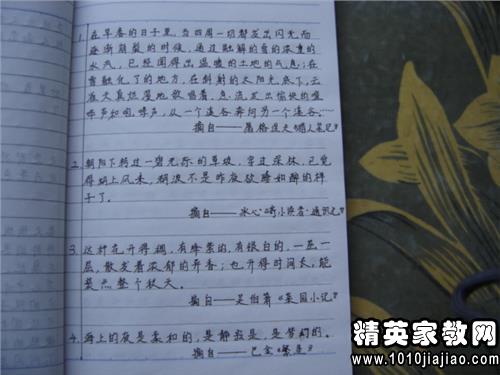 1. 在早春的日子里,当四周一切都发出闪光而
逐渐崩裂的时候,通过融解的雪的浓重的
水气,已经闻得出温暖的土地的气息;在
雪融化了的地方,在斜射的太阳光底下,云
雀天真烂漫地歌唱着,急流发出愉快的喧
哗声和咆哮声,从一个溪谷奔向另一个溪谷……
摘自——屠格涅夫《猎人笔记》
2. 朝阳下转过一碧无际的草坡,穿过深林,已觉
得湖上风来,湖波不是昨夜欲睡如醉的样
子了。
摘自——冰心《寄小读者·通讯七》
3. 这种花开得稠,有绛紫的,有银白的,一层一
层,散发着浓郁的异香;也开得时间长,能
装点整个秋天。
摘自——吴伯箫《菜园小记》
4. 海上的夜是柔和的,是静寂的,是梦幻的。
摘自——巴金《繁星》
精英家教网
www.1010jiajiao.com